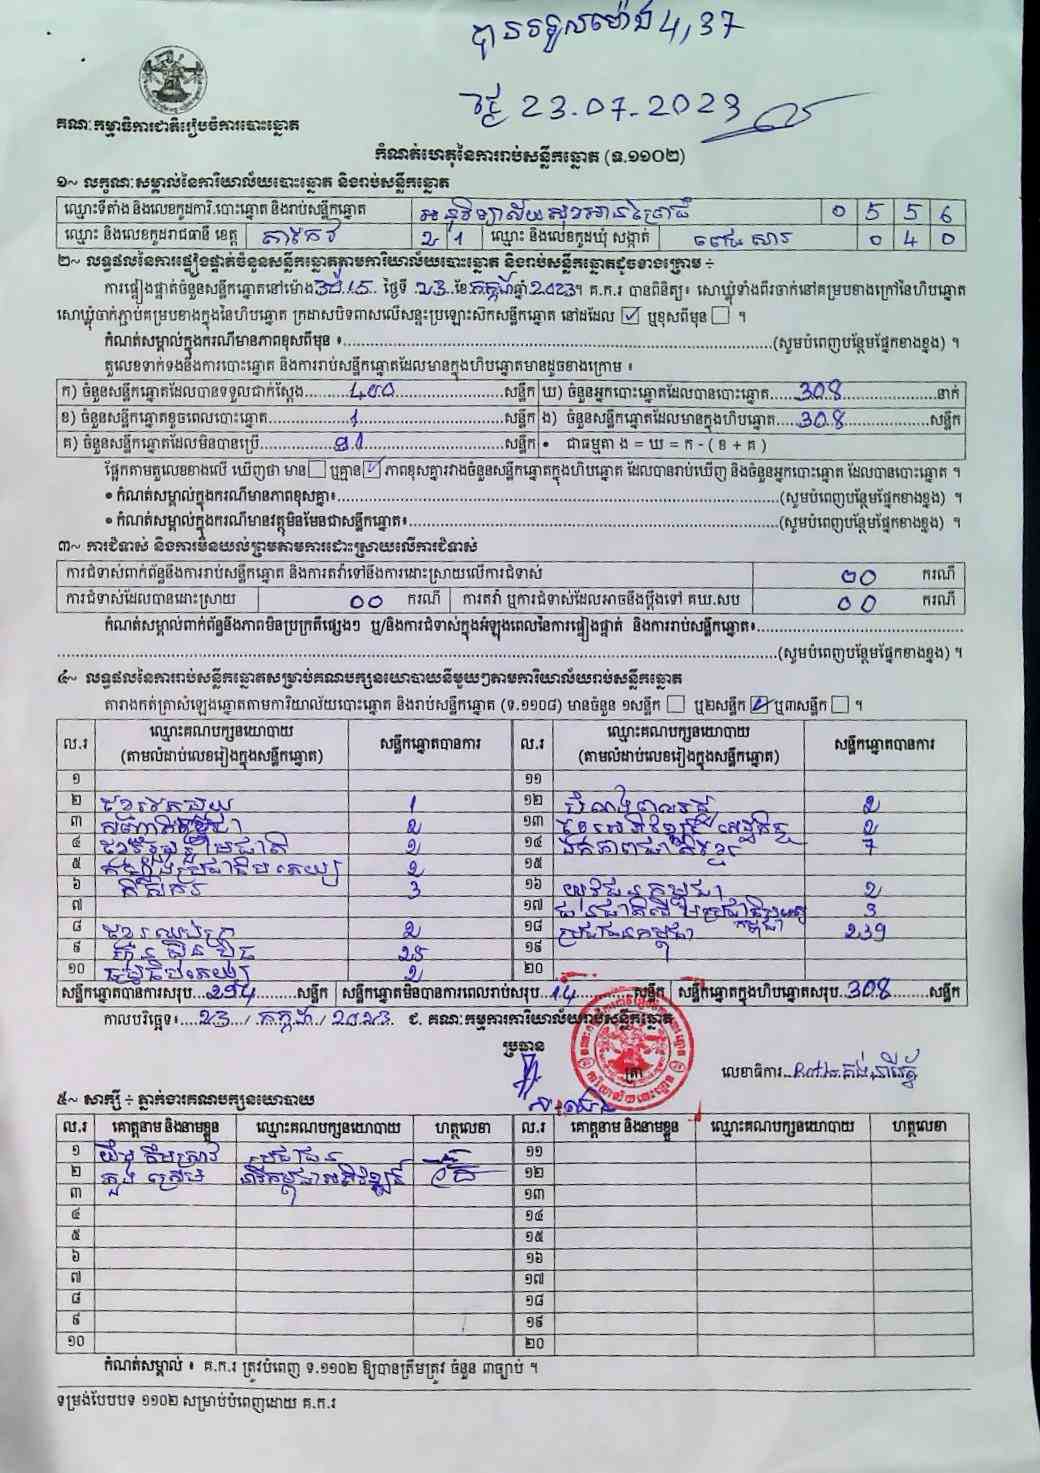 បានទទួលម៉ោង 4,37
ថ្ងៃ 23.07.2023
គណៈកម្មាធិការជាតិរៀបចំការបោះឆ្នោត
កំណត់ហេតុនៃការរាប់សន្លឹកឆ្នោត (ទ.១១០២)
១~ លក្ខណៈសម្គាល់នៃការិយាល័យបោះឆ្នោត និងរាប់សន្លឹកឆ្នោត
ឈ្មោះទីតាំង និងលេខកូដការិ.បោះឆ្នោត និងរាប់សន្លឹកឆ្នោត អនុវិទ្យាល័យ 0 5 5 6
ឈ្មោះ និងលេខកូដរាជធានី ខេត្ត តាកែវ 2 1 ឈ្មោះ និងលេខកូដឃុំ សង្កាត់ 0 4 0
២~ លទ្ធផលនៃការផ្ទៀងផ្ទាត់ចំនួនសន្លឹកឆ្នោតក្នុងការិយាល័យបោះឆ្នោត និងរាប់សន្លឹកឆ្នោតដូចខាងក្រោម ÷
ការផ្ទៀងផ្ទាត់ចំនួនសន្លឹកឆ្នោតនៅម៉ោង 3:15 ថ្ងៃទី 23 ខែ កក្កដា ឆ្នាំ 2023។ គ.ក.រ បានពិនិត្យ៖ សោឃ្លុំទាំងពីរចាក់នៅគម្របខាងក្រៅនៃហិបឆ្នោត
សោឃ្លុំចាក់ភ្ជាប់គម្របខាងក្នុងនៃហិបឆ្នោត ក្រដាសបិទពាសលើសន្ទះប្រឡោះសិកសន្លឹកឆ្នោត នៅដដែល ☑ ឬខុសពីមុន ☐ ។
កំណត់សម្គាល់ក្នុងករណីមានភាពខុសពីមុន ៖ (សូមបំពេញបន្ថែមផ្នែកខាងខ្នង) ។
តួលេខទាក់ទងនឹងការបោះឆ្នោត និងការរាប់សន្លឹកឆ្នោតដែលមានក្នុងហិបឆ្នោតមានដូចខាងក្រោម ៖
ក) ចំនួនសន្លឹកឆ្នោតដែលបានទទួលជាក់ស្តែង 400 សន្លឹក ឃ) ចំនួនអ្នកបោះឆ្នោតដែលបានបោះឆ្នោត 308 នាក់
ខ) ចំនួនសន្លឹកឆ្នោតខូចពេលបោះឆ្នោត 1 សន្លឹក ង) ចំនួនសន្លឹកឆ្នោតដែលមានក្នុងហិបឆ្នោត 308 សន្លឹក
គ) ចំនួនសន្លឹកឆ្នោតដែលមិនបានប្រើ 91 សន្លឹក • ជាធម្មតា ង = ឃ = ក - ( ខ + គ )
ផ្អែកតាមតួលេខខាងលើ ឃើញថា មាន ☐ ឬគ្មាន ☑ ភាពខុសគ្នារវាងចំនួនសន្លឹកឆ្នោតក្នុងហិបឆ្នោត ដែលបានរាប់ឃើញ និងចំនួនអ្នកបោះឆ្នោត ដែលបានបោះឆ្នោត ។
• កំណត់សម្គាល់ក្នុងករណីមានភាពខុសគ្នា៖ (សូមបំពេញបន្ថែមផ្នែកខាងខ្នង) ។
• កំណត់សម្គាល់ក្នុងករណីមានវត្ថុមិនមែនជាសន្លឹកឆ្នោត៖ (សូមបំពេញបន្ថែមផ្នែកខាងខ្នង) ។
៣~ ការជំទាស់ និងការមិនយល់ព្រមតាមការដោះស្រាយលើការជំទាស់
ការជំទាស់ពាក់ព័ន្ធនឹងការរាប់សន្លឹកឆ្នោត និងការតវ៉ាទៅនឹងការដោះស្រាយលើការជំទាស់ 00 ករណី
ការជំទាស់ដែលបានដោះស្រាយ 00 ករណី ការតវ៉ា ឬការជំទាស់ដែលអាចនឹងប្តឹងទៅ គឃ.សប 00 ករណី
កំណត់សម្គាល់ពាក់ព័ន្ធនឹងភាពមិនប្រក្រតីផ្សេងៗ ឬ/និងការជំទាស់ក្នុងអំឡុងពេលនៃការផ្ទៀងផ្ទាត់ និងការរាប់សន្លឹកឆ្នោត៖
(សូមបំពេញបន្ថែមផ្នែកខាងខ្នង) ។
៤~ លទ្ធផលនៃការរាប់សន្លឹកឆ្នោតសម្រាប់គណបក្សនយោបាយនីមួយៗតាមការិយាល័យរាប់សន្លឹកឆ្នោត
តារាងកត់ត្រាសំឡេងឆ្នោតតាមការិយាល័យបោះឆ្នោត និងរាប់សន្លឹកឆ្នោត (ទ.១១០៨) មានចំនួន ១សន្លឹក ☐ ឬ២សន្លឹក ☑ ឬ៣សន្លឹក ☐ ។
ល.រ ឈ្មោះគណបក្សនយោបាយ (តាមលំដាប់លេខរៀងក្នុងសន្លឹកឆ្នោត) សន្លឹកឆ្នោតបានការ ល.រ ឈ្មោះគណបក្សនយោបាយ (តាមលំដាប់លេខរៀងក្នុងសន្លឹកឆ្នោត) សន្លឹកឆ្នោតបានការ
១ ១១
២ 1 ១២ 2
៣ 2 ១៣ 2
៤ 2 ១៤ ឯកភាពជាតិខ្មែរ 7
៥ 2 ១៥
៦ កសិករ 3 ១៦ យុវជនកម្ពុជា 2
៧ ១៧ 3
៨ 2 ១៨ ប្រជាជនកម្ពុជា 239
៩ ហ៊្វុនស៊ិនប៉ិច 25 ១៩
១០ ធម្មាធិបតេយ្យ 2 ២០
សន្លឹកឆ្នោតបានការសរុប 294 សន្លឹក សន្លឹកឆ្នោតមិនបានការពេលរាប់សរុប 14 សន្លឹក សន្លឹកឆ្នោតក្នុងហិបឆ្នោតសរុប 308 សន្លឹក
កាលបរិច្ឆេទ៖ 23 / កក្កដា / 2023 ជ. គណៈកម្មការការិយាល័យរាប់សន្លឹកឆ្នោត
ប្រធាន
ត្រា
លេខាធិការ
៥~ សាក្សី ÷ ភ្នាក់ងារគណបក្សនយោបាយ
ល.រ គោត្តនាម និងនាមខ្លួន ឈ្មោះគណបក្សនយោបាយ ហត្ថលេខា ល.រ គោត្តនាម និងនាមខ្លួន ឈ្មោះគណបក្សនយោបាយ ហត្ថលេខា
១ ប្រជាជន ១១
២ ១២
៣ ១៣
៤ ១៤
៥ ១៥
៦ ១៦
៧ ១៧
៨ ១៨
៩ ១៩
១០ ២០
កំណត់សម្គាល់ ៖ គ.ក.រ ត្រូវបំពេញ ទ.១១០២ ឱ្យបានត្រឹមត្រូវ ចំនួន ៣ច្បាប់ ។
ទម្រង់បែបបទ ១១០២ សម្រាប់បំពេញដោយ គ.ក.រ